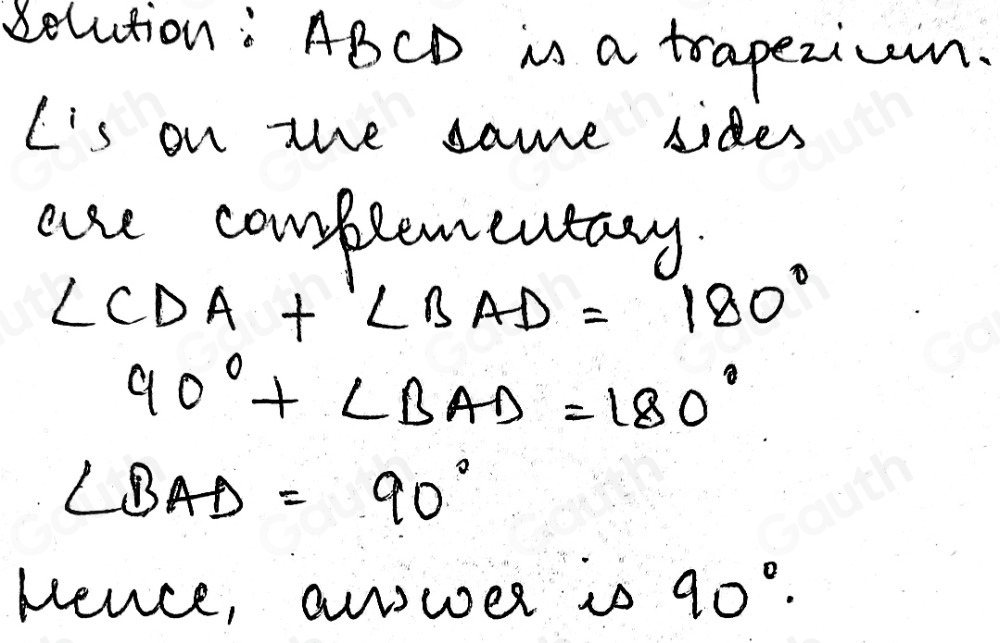 Solution: ABCD is a trapezium.
∠'s on the same sides
are complementary.
∠CDA + ∠BAD = 180°
90° + ∠BAD = 180°
∠BAD = 90°
Hence, answer is 90°.